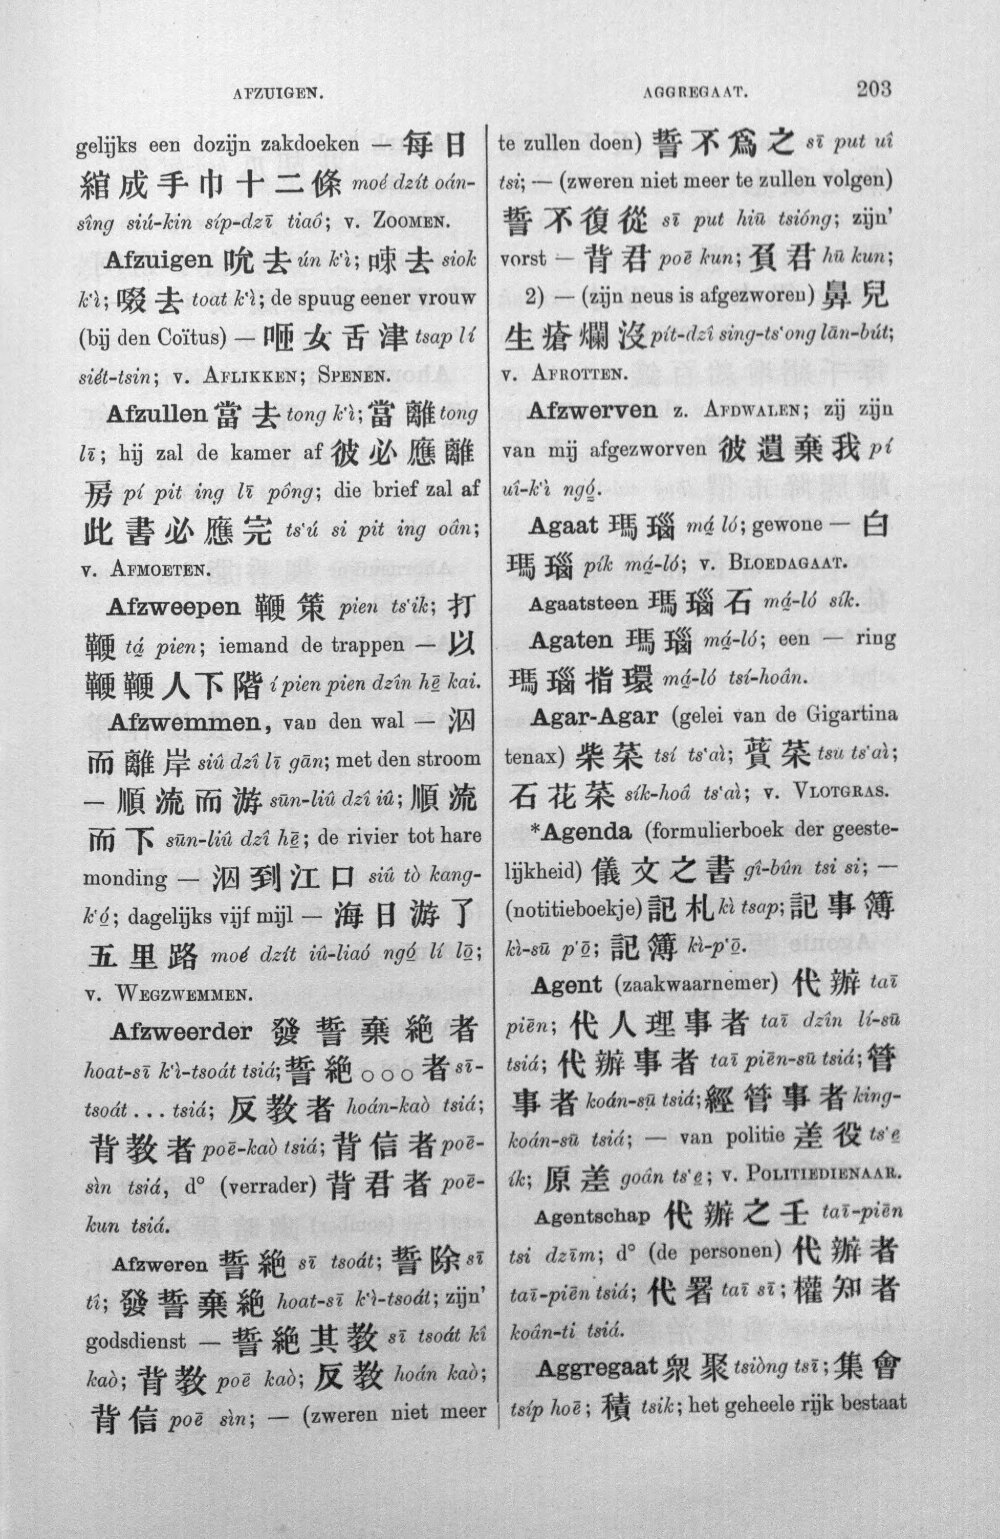 AFZUIGEN.
AGGREGAAT.
203
gelijks een dozijn zakdoeken — 每日
綰成手巾十二條 moé dzít oán-
sîng siú-kin síp-dzī tiaô; v. ZOOMEN.
Afzuigen 吮去 ún k‘ì; 㖼去 siok
k‘ì; 啜去 toat k‘ì; de spuug eener vrouw
(bij den Coïtus) — 咂女舌津 tsap lí
siét-tsin; v. AFLIKKEN; SPENEN.
Afzullen 當去 tong k‘ì; 當離 tong
lī; hij zal de kamer af 彼必應離
房 pí pit ing lī pông; die brief zal af
此書必應完 ts‘ú si pit ing oân;
v. AFMOETEN.
Afzweepen 鞭策 pien ts‘ik; 打
鞭 tá̤ pien; iemand de trappen — 以
鞭鞭人下階 í pien pien dzîn hē̤ kai.
Afzwemmen, van den wal — 泅
而離岸 siû dzî lī gān; met den stroom
— 順流而游 sūn-liû dzî iû; 順流
而下 sūn-liû dzî hē̤; de rivier tot hare
monding — 泅到江口 siû tò kang-
k‘ó̤; dagelijks vijf mijl — 海日游了
五里路 moé dzít iû-liaó ngó̤ lí lō̤;
v. WEGZWEMMEN.
Afzweerder 發誓棄絶者
hoat-sī k‘ì-tsoát tsiá; 誓絶○○○者 sī-
tsoát ... tsiá; 反教者 hoán-kaò tsiá;
背教者 poē-kaò tsiá; 背信者 poē-
sìn tsiá, d° (verrader) 背君者 poē-
kun tsiá.
Afzweren 誓絶 sī tsoát; 誓除 sī
tî; 發誓棄絶 hoat-sī k‘ì-tsoát; zijn’
godsdienst — 誓絶其教 sī tsoát kî
kaò; 背教 poē kaò; 反教 hoán kaò;
背信 poē sìn; — (zweren niet meer
te zullen doen) 誓不爲之 sī put uî
tsi; — (zweren niet meer te zullen volgen)
誓不復從 sī put hiū tsióng; zijn’
vorst — 背君 poē kun; 負君 hū kun;
2) — (zijn neus is afgezworen) 鼻兒
生瘡爛沒 pít-dzî sing-ts‘ong lān-bút;
v. AFROTTEN.
Afzwerven z. AFDWALEN; zij zijn
van mij afgezworven 彼遺棄我 pí
uî-k‘ì ngó̤.
Agaat 瑪瑙 má̤ ló; gewone — 白
瑪瑙 pík má̤-ló; v. BLOEDAGAAT.
Agaatsteen 瑪瑙石 má̤-ló sík.
Agaten 瑪瑙 má̤-ló; een — ring
瑪瑙指環 má̤-ló tsí-hoân.
Agar-Agar (gelei van de Gigartina
tenax) 柴菜 tsí ts‘aì; 菜 tsu ts‘aì;
石花菜 sík-hoâ ts‘aì; v. VLOTGRAS.
*Agenda (formulierboek der geeste-
lijkheid) 儀文之書 gî-bûn tsi si; —
(notitieboekje) 記札 kì tsap; 記事簿
kì-sū p‘ō̤; 記簿 kì-p‘ō̤.
Agent (zaakwaarnemer) 代辦 taī
piēn; 代人理事者 taī dzîn lí-sū
tsiá; 代辦事者 taī piēn-sū tsiá; 管
事者 koán-sū tsiá; 經管事者 king-
koán-sū tsiá; — van politie 差役 ts‘e̤
ík; 原差 goân ts‘e̤; v. POLITIEDIENAAR.
Agentschap 代辦之壬 taī-piēn
tsi dzīm; d° (de personen) 代辦者
taī-piēn tsiá; 代署 taī sī; 權知者
koân-ti tsiá.
Aggregaat 衆聚 tsiòng tsī; 集會
tsíp hoē; 積 tsik; het geheele rijk bestaat